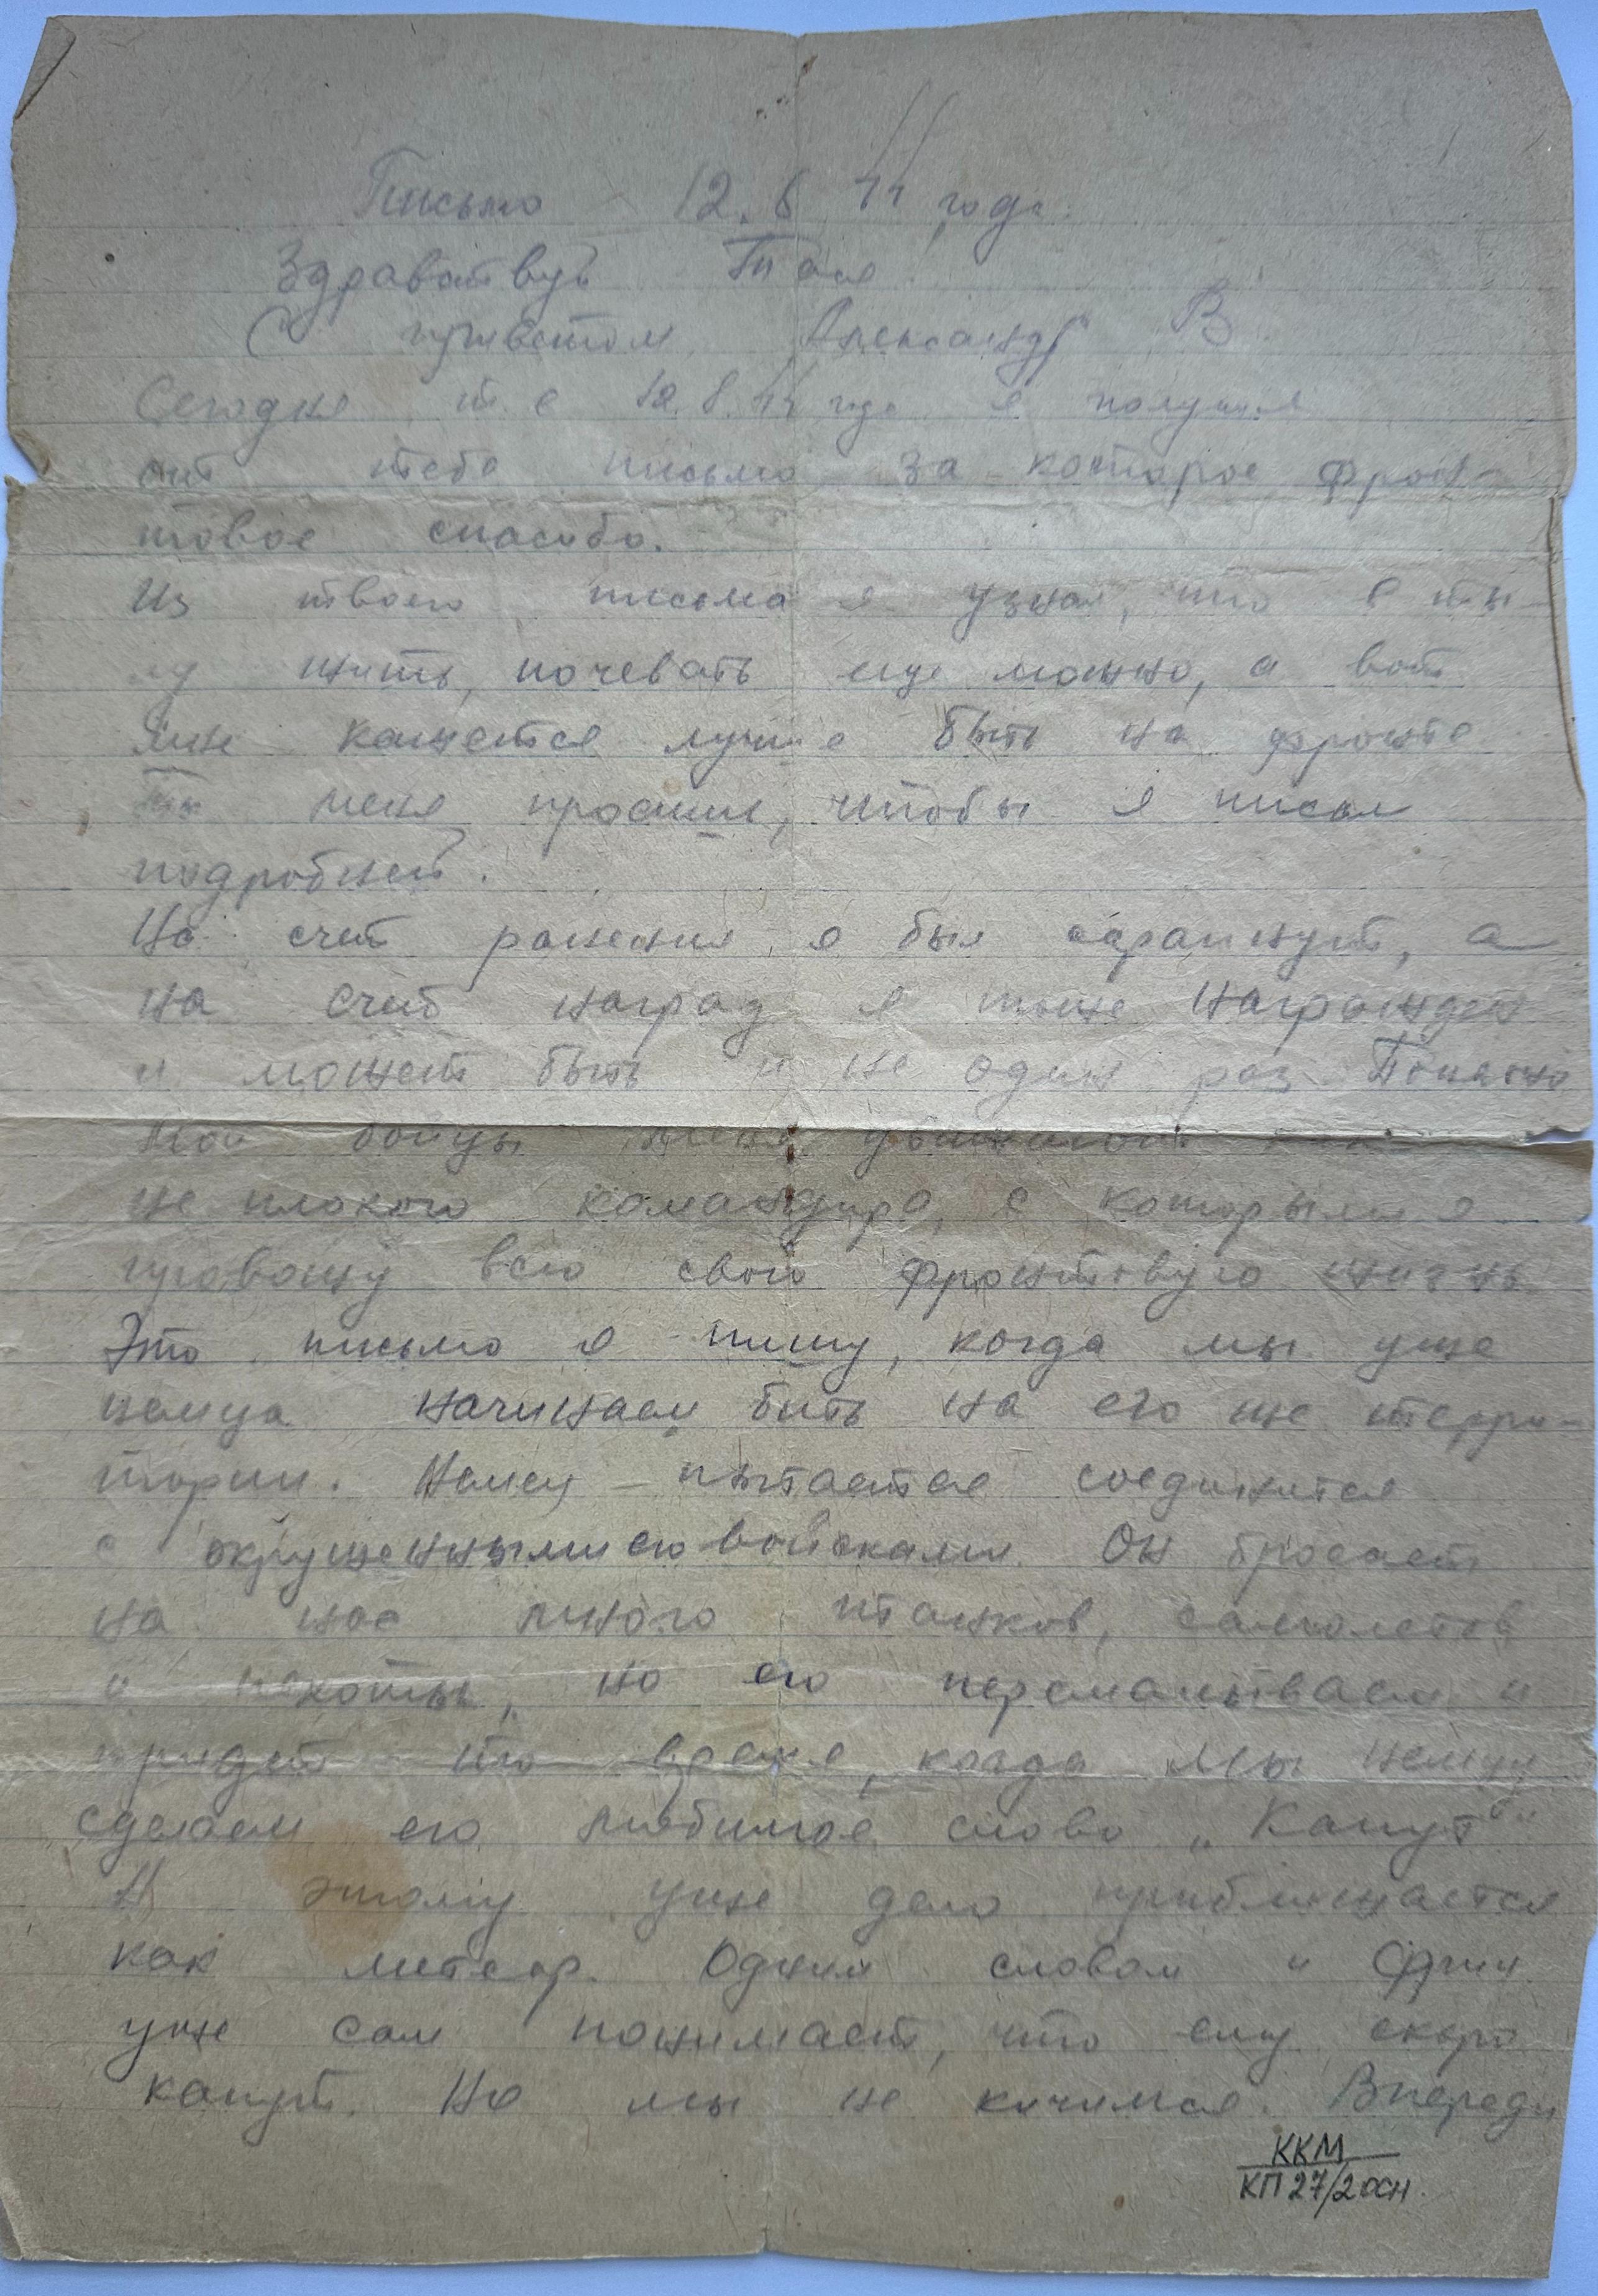 Письмо 12.8.44 года.
Здравствуй Тася.
С приветом Александр В.
Сегодня т.е 12.8.44 года я получил
от тебя письмо за которое фрон-
товое спасибо.
Из твоего письма я узнал, что в ты-
лу жить, ночевать еще можно, а вот
мне кажется лучше быть на фронте
Ты меня просишь, чтобы я писал
подробней.
На счет ранения я был царапнут, а
на счет наград я тоже награжден
и может быть и не один раз
Мои бойцы меня уважают как
не плохого командира, с которыми я
провожу всю свою фронтовую жизнь.
Это письмо я пишу, когда мы уже
немца начинаем бить на его же терри-
тории. Немец пытается соединится
с окруженными его войсками. Он бросает
на нас много танков, самолетов
и пехоты, но его перемалываем и
придет то время, когда мы немцу
сделаем его любимое слово „Капут"
К этому уже дело приближается
как метеор. Одним словом " Фриц
уже сам понимает, что ему скоро
капут. Но мы не кичимся. Впереди
ККМ
КП 27/2 осн.